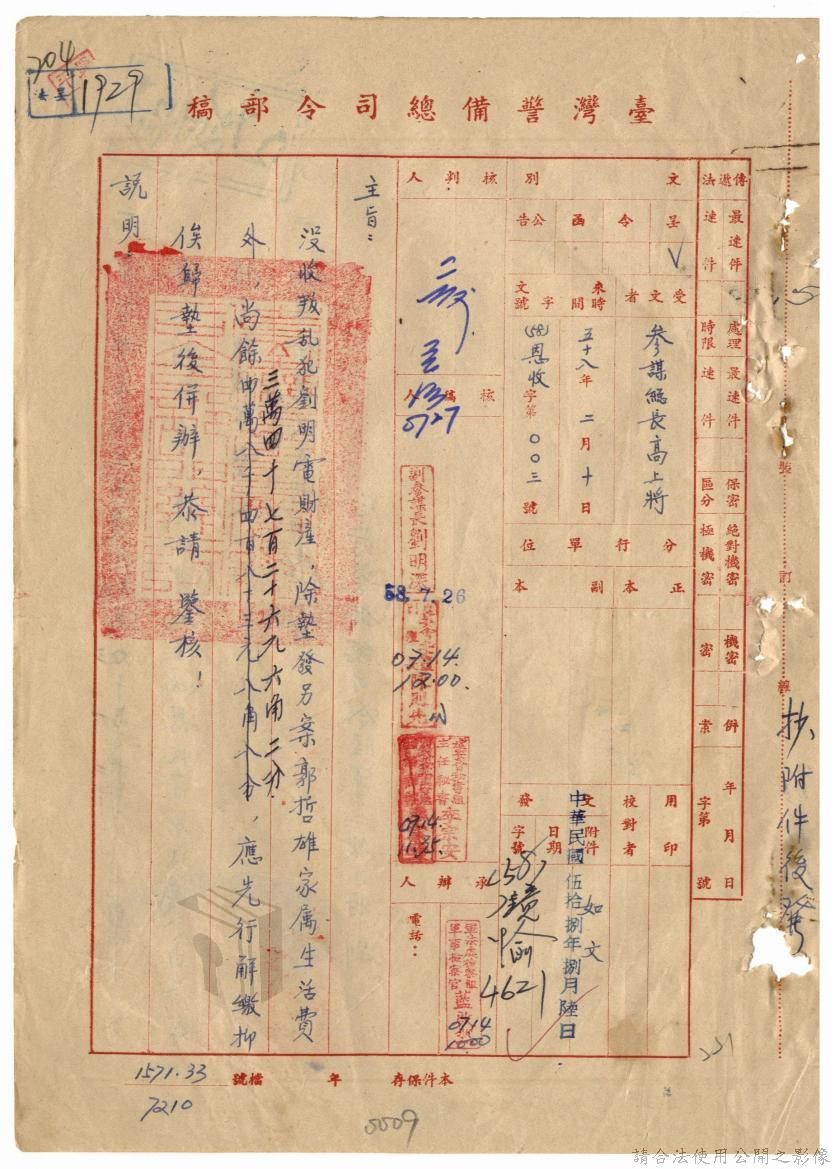 204
1929
臺灣警備總司令部稿
傳遞法 最速件 速件
處理時限 最速件 速件
保密區分 絕對機密 極機密 機密 密
併案 年 月 日 字第 號
文別 呈 令 函 公告
受文者 參謀總長高上將
來文 時間 五十八年二月十日
字號 (58)恩收字第〇〇三號
分行單位 正本 副本
用印
校對者
附件 如文
發文 日期 中華民國伍拾捌年捌月陸日
字號 (58) 4621
核判人
核稿人
0727
58.7.26
07.14.
10.00.
07.14.
11.35.
承辦人
電話：
07.14
10.00
主旨：
沒收叛乱犯劉明電財產，除墊發另案郭哲雄家属生活費
三萬四千七百二十六元六角二分
外，尚餘四萬八千四百八十三元八角八分，應先行解繳抑
俟歸墊後併辦，恭請 鑒核！
説明：
抄附件後發
裝 訂 線
本件保存 年 檔號 1571.33
7210
0009
請合法使用公開之影像